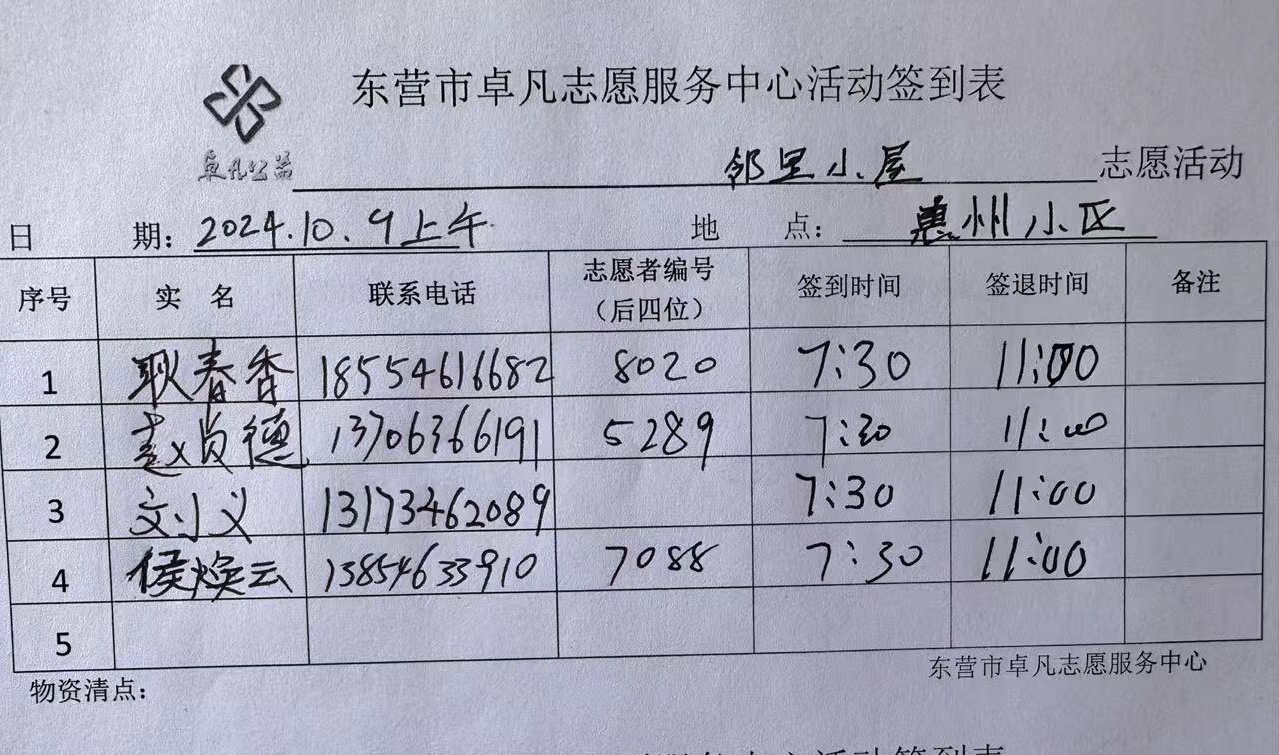 东营市卓凡志愿服务中心活动签到表
卓凡公益
邻里小屋 志愿活动
日 期：2024.10.9上午 地 点：惠州小区
序号 实 名 联系电话 志愿者编号（后四位） 签到时间 签退时间 备注
1 耿春香 18554616682 8020 7:30 11:00
2 赵贞德 13706366191 5289 7:30 11:00
3 文小义 13173462089 7:30 11:00
4 侯焕云 13854633910 7088 7:30 11:00
5
东营市卓凡志愿服务中心
物资清点：